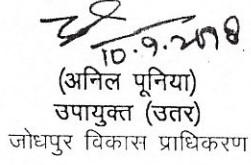 10.9.2018
(अनिल पूनिया)
उपायुक्त (उतर)
जोधपुर विकास प्राधिकरण